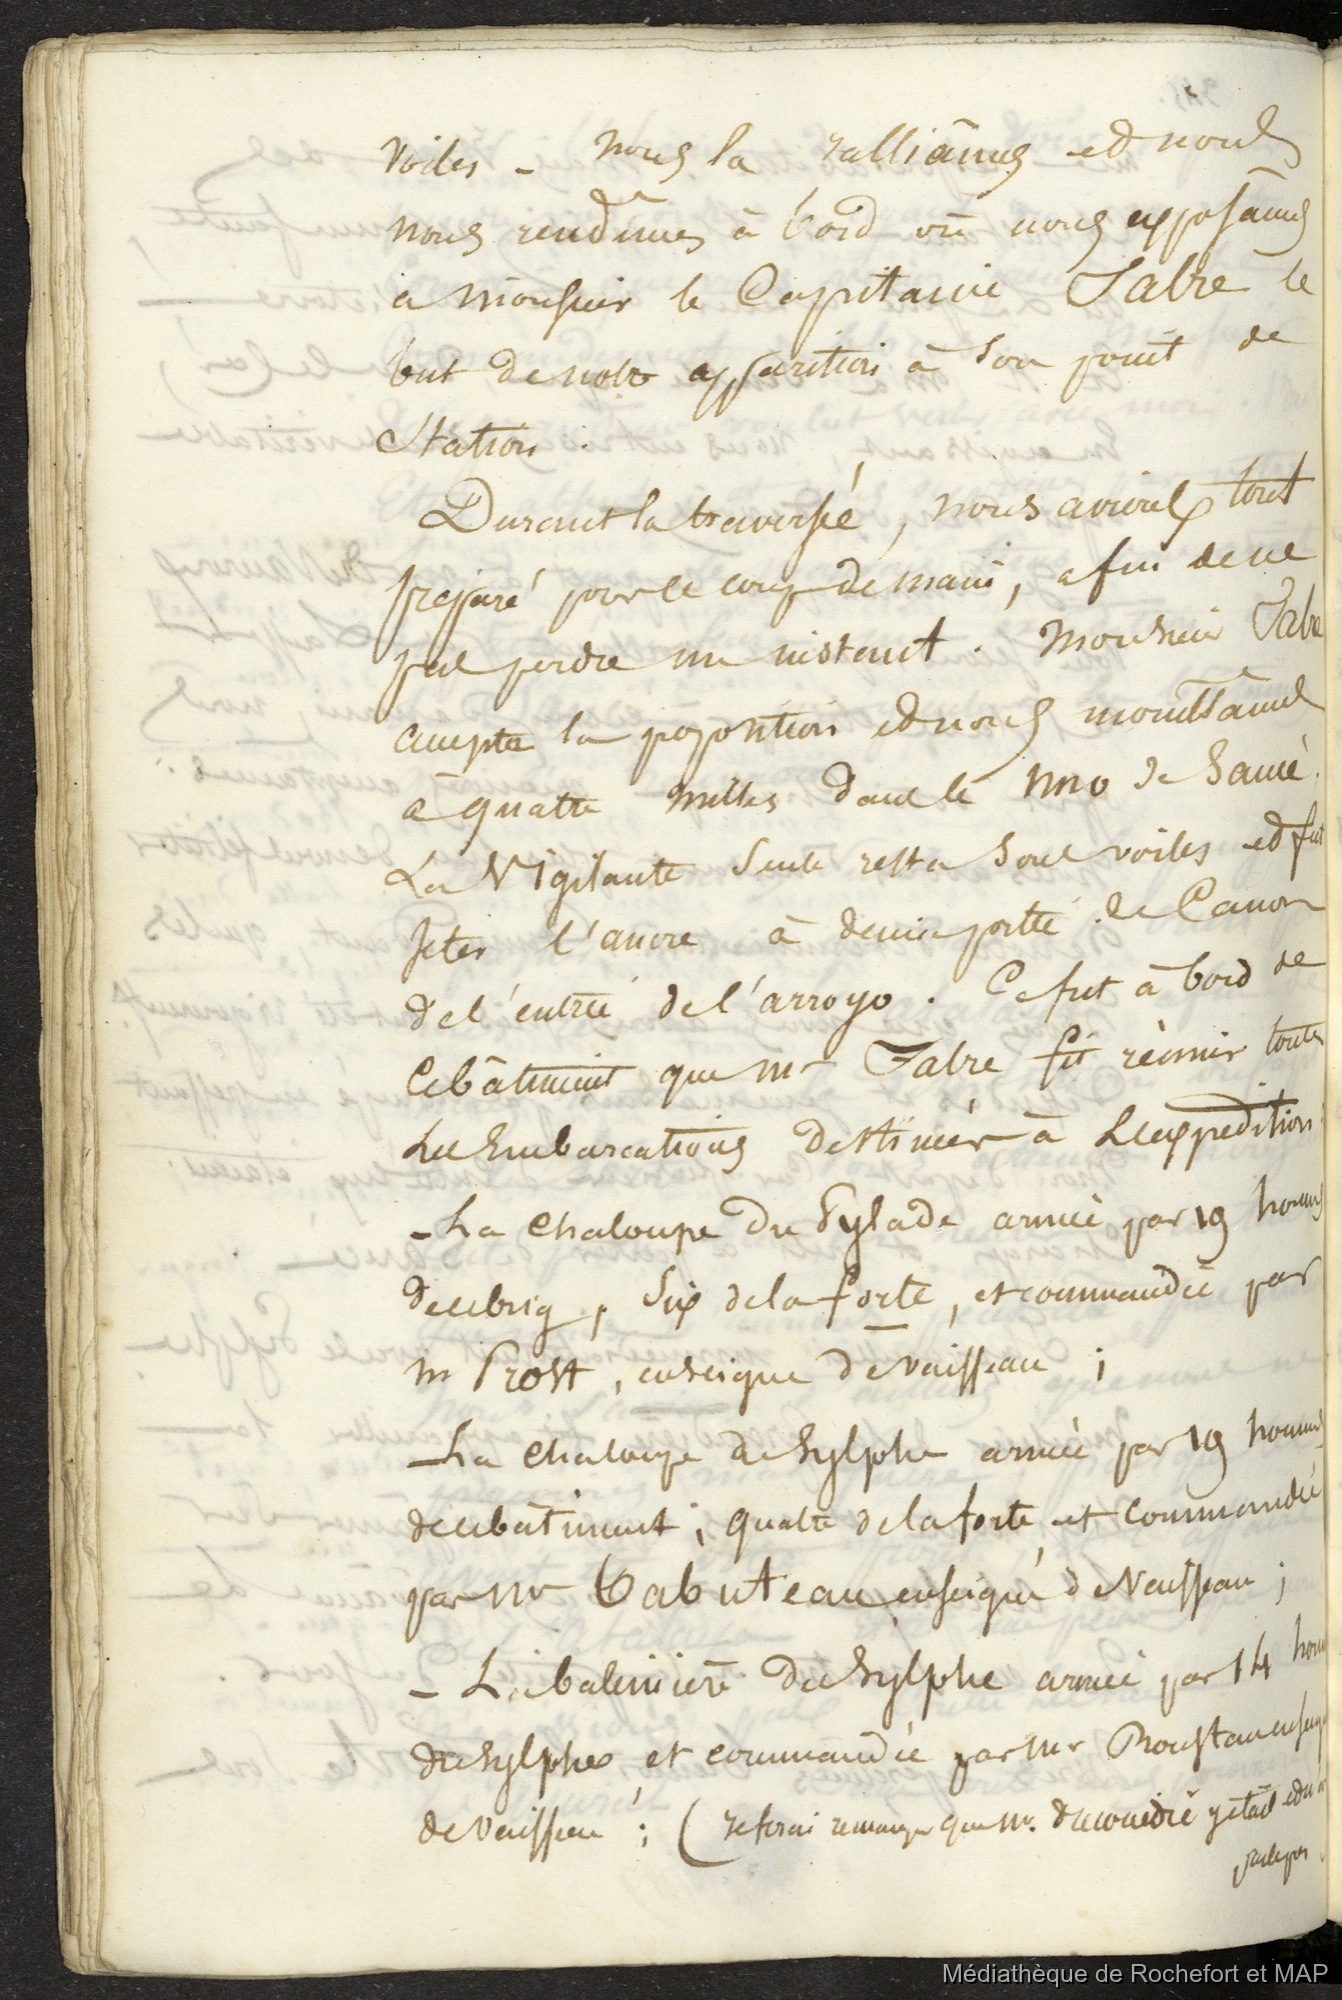 Voiles - nous la ralliâmes et nous
nous rendîmes à bord où nous exposâmes
a monsieur le Capitaine Fabre le
but de notre apparition à son point de
Station.
Durant la traversée, nous avions tout
preparé pour le coup de main, afin de ne
pas perdre un instant. Monsieur Fabre
accepta la proposition et nous mouillâmes
à quatre milles dans le NNO de Samé.
La Vigilante seule resta sous voiles et fut
jeter l'ancre à demie portée de Canon
de l'entrée de l'arroyo. Ce fut à bord de
ce bâtiment que Mr Fabre fit réunir toutes
les Embarcations destinées à L'expédition.
- La Chaloupe du Pylade armée par 19 hommes
de ce brig, six de la forte, et commandée par
m Prost, enseigne de vaisseau;
- La Chaloupe du Sylphe armée par 19 hommes
de ce bâtiment, quatre de la forte et commandée
par Mr Tabuteau enseigne de Vaisseau;
- La baleinière du Sylphe armée par 14 hom
du Sylphe et commandée par Mr Roustan enseigne
de vaisseau; (je ferai remarquer que Mr. ducouëdic y était et n'
parle pas
Médiathèque de Rochefort et MAP